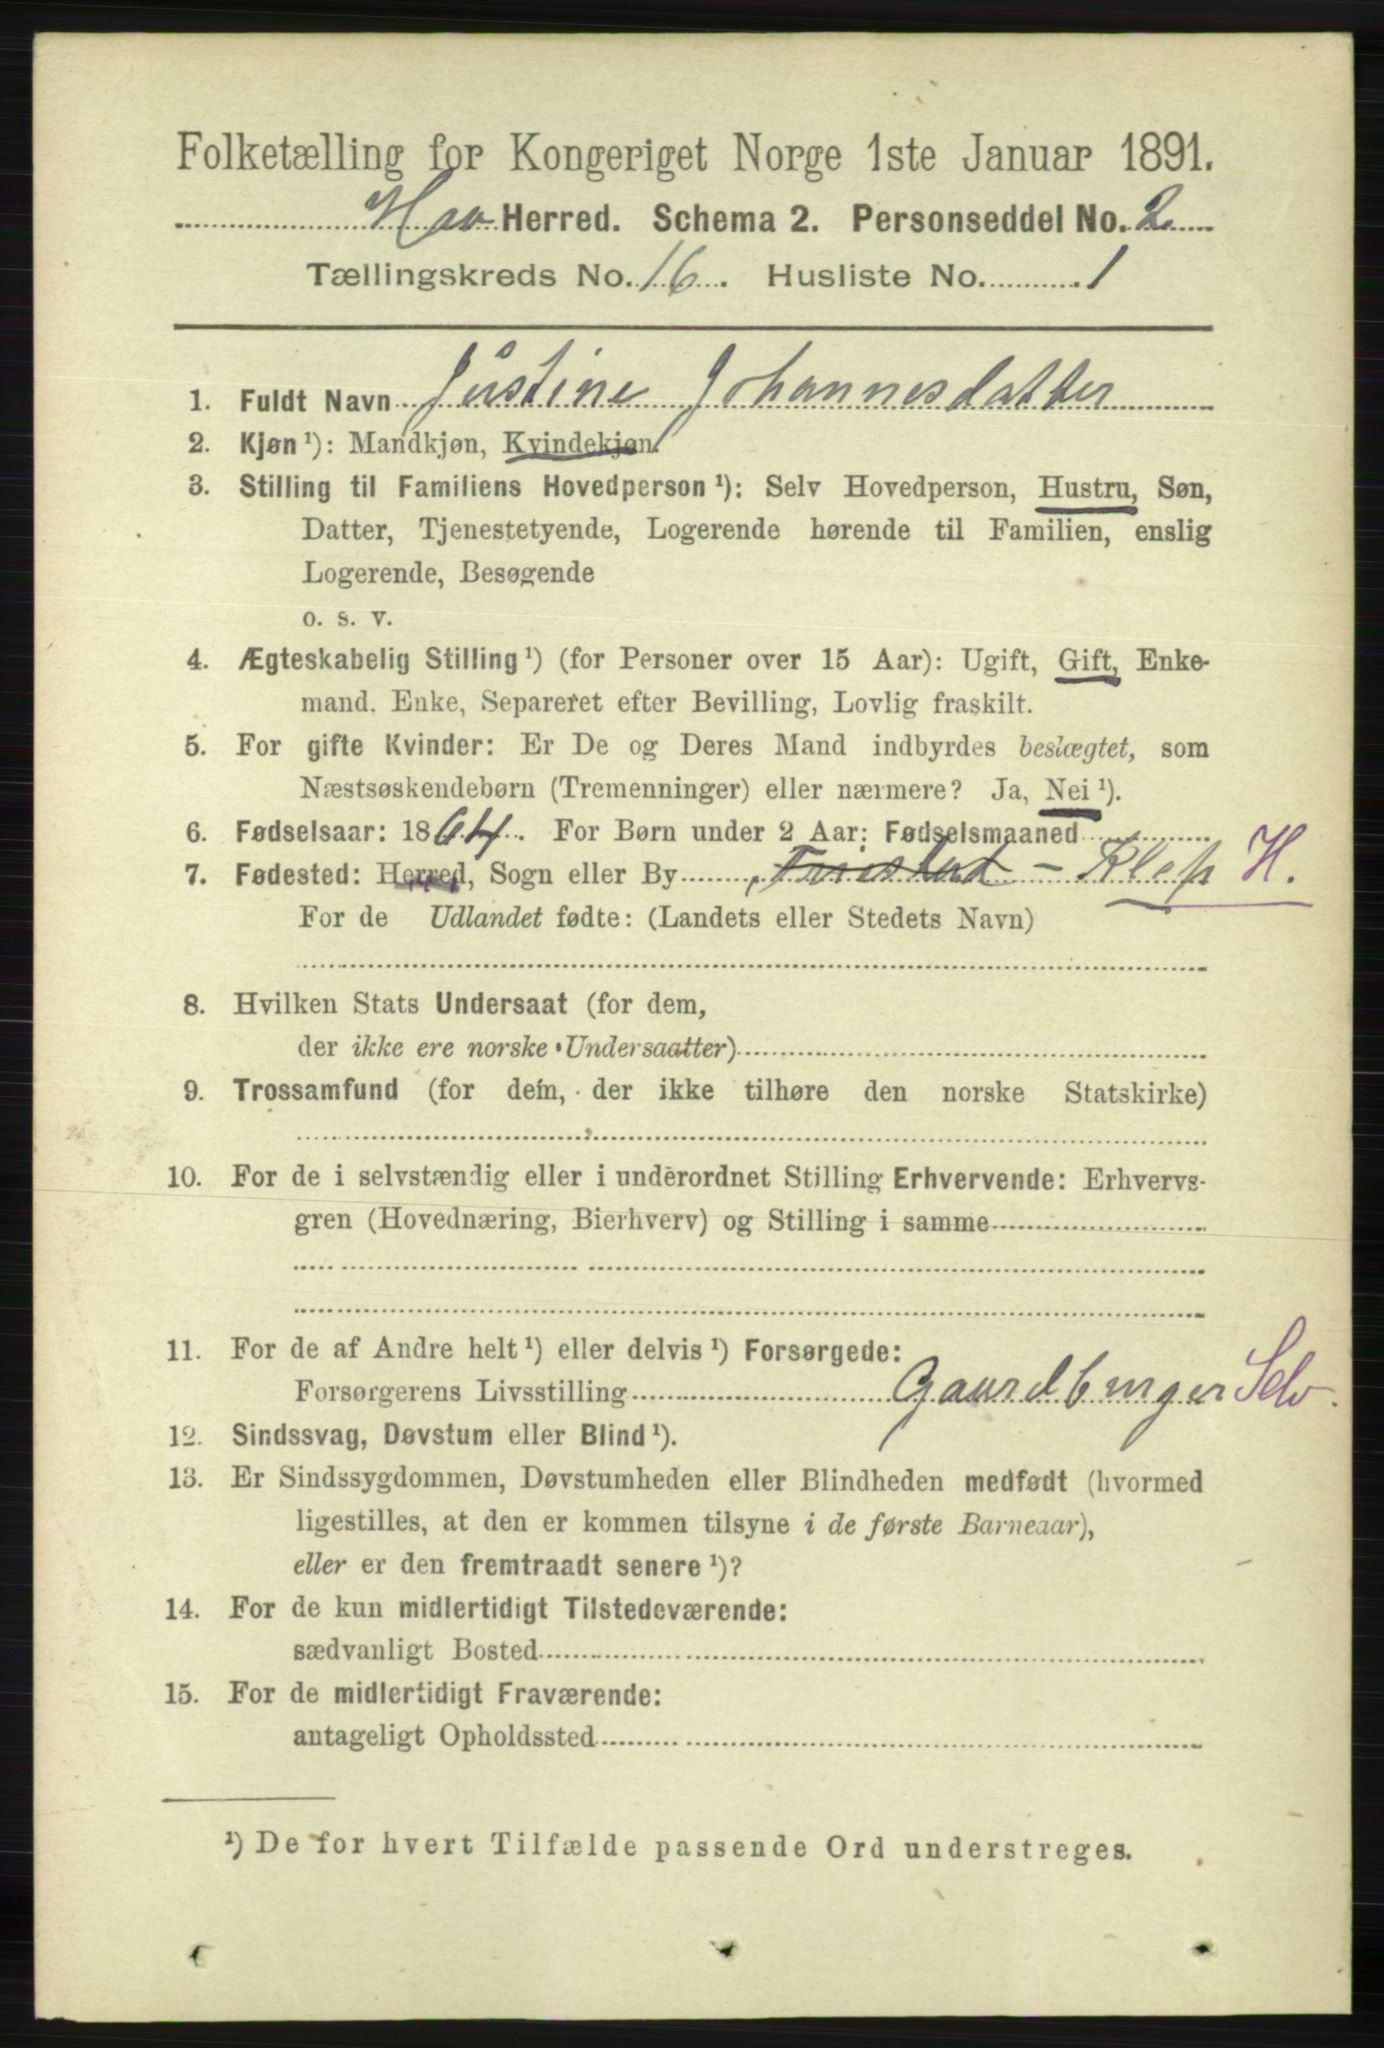 Folketælling for Kongeriget Norge 1ste Januar 1891.
Haa Herred. Schema 2. Personseddel No. 2
Tællingskreds No. 16. Husliste No. 1
1. Fuldt Navn Justine Johannesdatter
2. Kjøn ¹): Mandkjøn, Kvindekjøn.
3. Stilling til Familiens Hovedperson ¹): Selv Hovedperson, Hustru, Søn,
Datter, Tjenestetyende, Logerende hørende til Familien, enslig
Logerende, Besøgende
o. s. v.
4. Ægteskabelig Stilling ¹) (for Personer over 15 Aar): Ugift, Gift, Enke-
mand, Enke, Separeret efter Bevilling, Lovlig fraskilt.
5. For gifte Kvinder: Er De og Deres Mand indbyrdes beslægtet, som
Næstsøskendebørn (Tremenninger) eller nærmere? Ja, Nei ¹).
6. Fødselsaar: 1864. For Børn under 2 Aar: Fødselsmaaned
7. Fødested: Herred, Sogn eller By - Klep H.
For de Udlandet fødte: (Landets eller Stedets Navn)
8. Hvilken Stats Undersaat (for dem,
der ikke ere norske Undersaatter)
9. Trossamfund (for dem, der ikke tilhøre den norske Statskirke)
10. For de i selvstændig eller i underordnet Stilling Erhvervende: Erhvervs-
gren (Hovednæring, Bierhverv) og Stilling i samme
11. For de af Andre helt ¹) eller delvis ¹) Forsørgede:
Forsørgerens Livsstilling Gaardbruger Selv.
12. Sindssvag, Døvstum eller Blind ¹).
13. Er Sindssygdommen, Døvstumheden eller Blindheden medfødt (hvormed
ligestilles, at den er kommen tilsyne i de første Barneaar),
eller er den fremtraadt senere ¹)?
14. For de kun midlertidigt Tilstedeværende:
sædvanligt Bosted
15. For de midlertidigt Fraværende:
antageligt Opholdssted
¹) De for hvert Tilfælde passende Ord understreges.